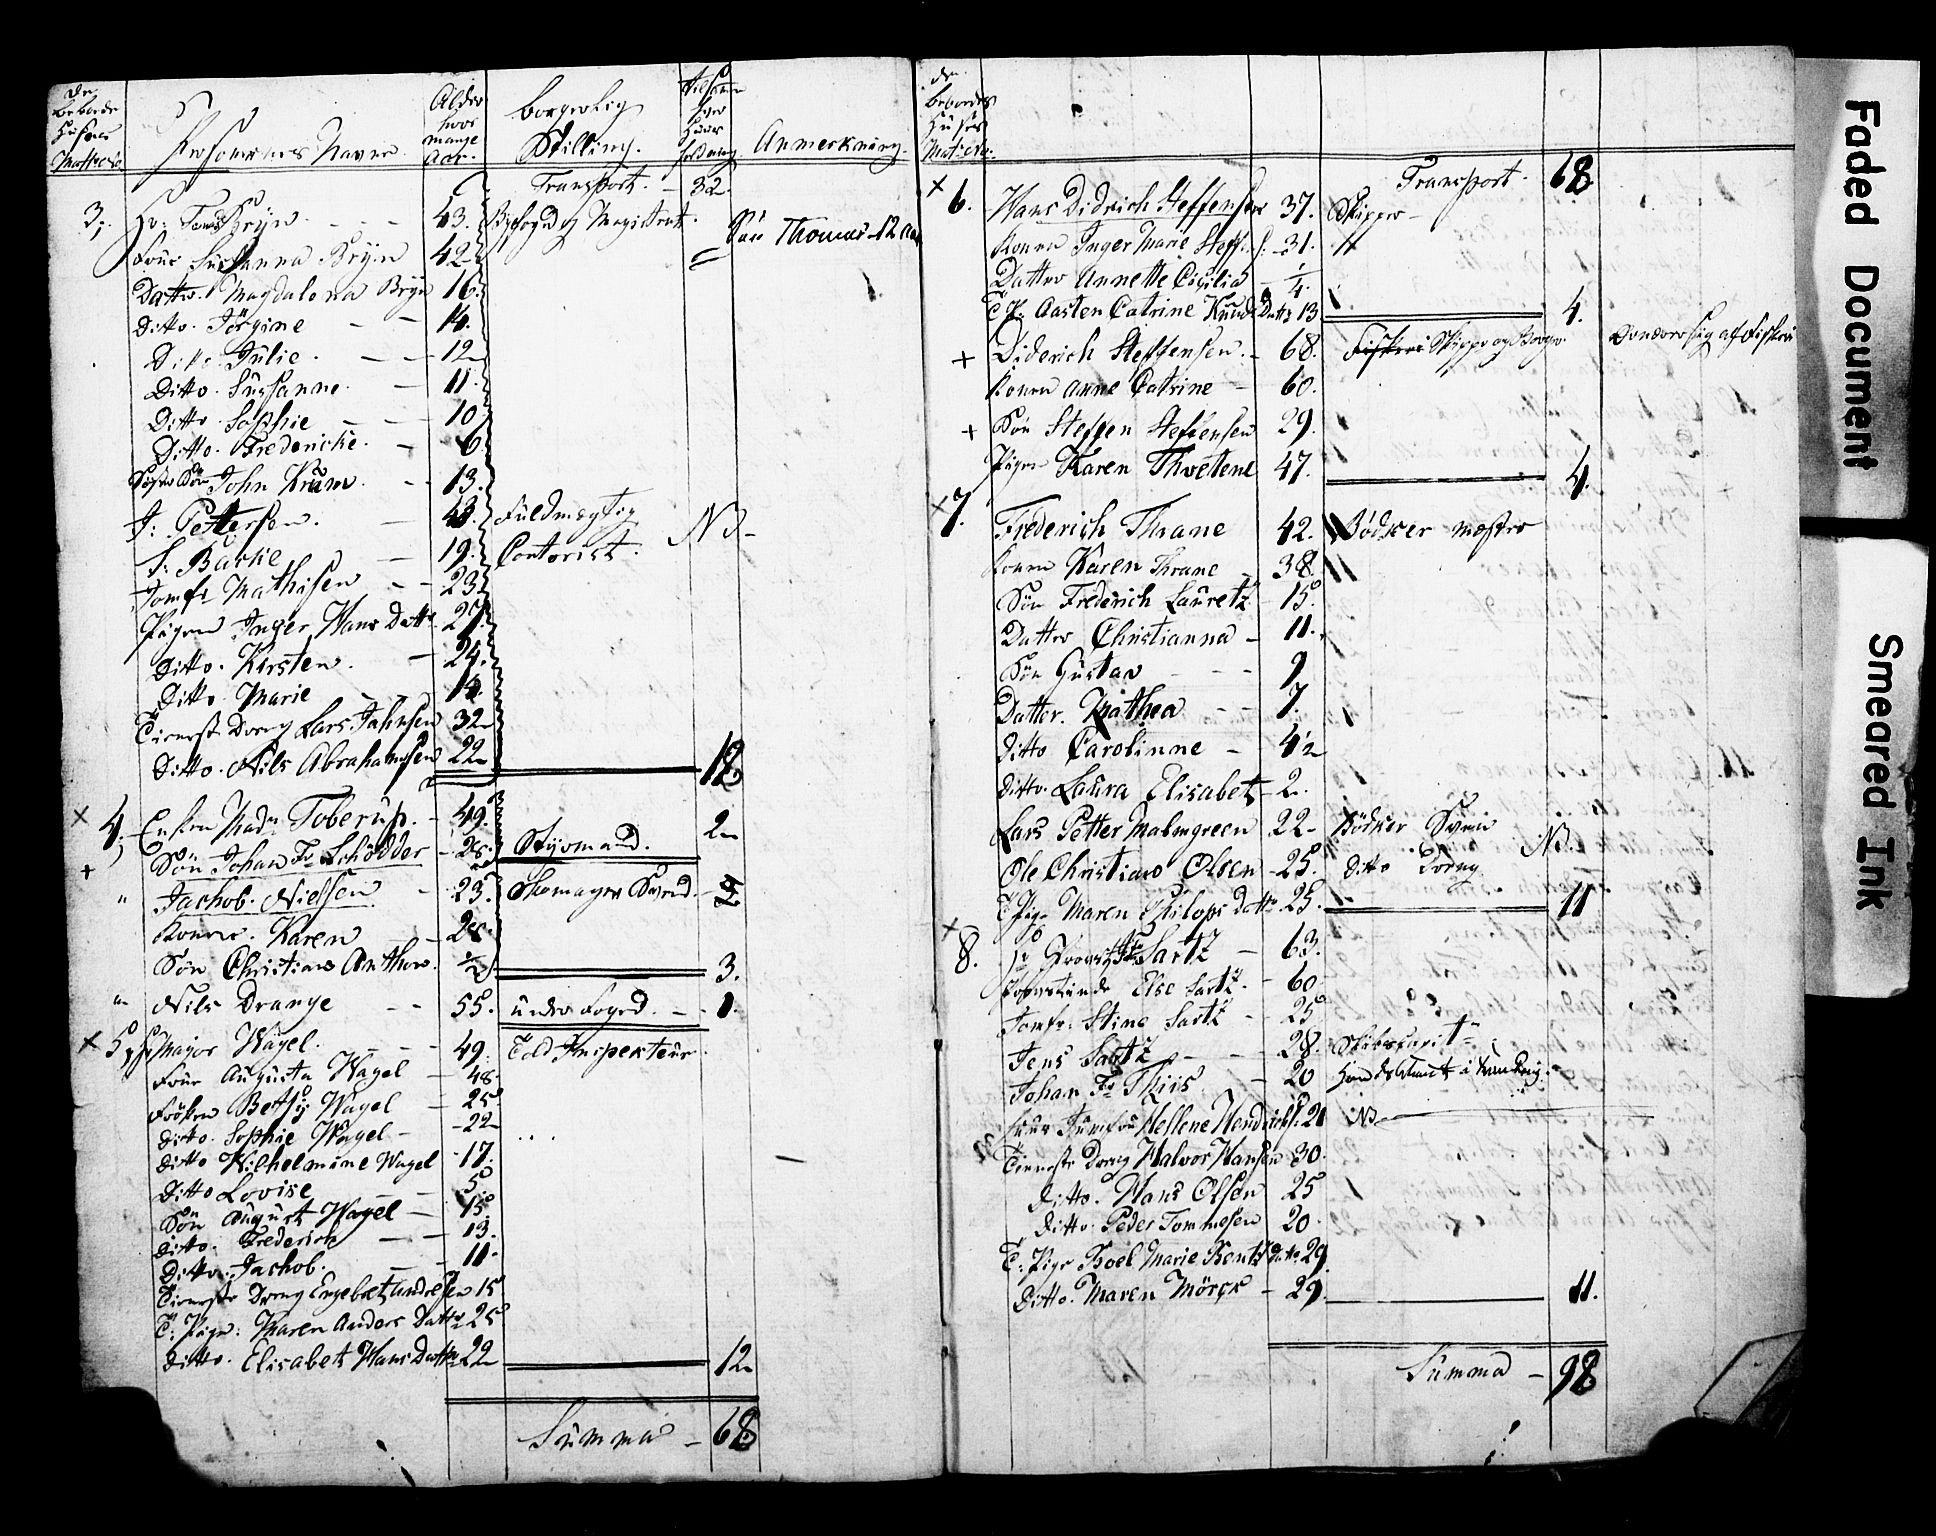 de beboede Huses Matr: No | Personernes Navne | Alder hvor mange Aar. | borgerlig Stilling. | Tilsammen hver Huus | Anmerkning.
Transport. - 32.
3, Hr: Bryn - - 43. Byfoged og Magistrat. Søn Thomas - 12 Aar
Frue Susanna Bryn 42
Datter. Magdalena Bryn 16.
Ditto. Jörgine - - 14.
Ditto. Julie. - - 12
Ditto. Susanne. - 11.
Ditto. Sophie - - 10
Ditto. Fredericke. - 6.
Søster Søn John Krüm. - 13.
J: Pettersen. - Fuldmægtig
S: Backe - 19. Contorist. NB -
Jomfr Mathisen - - 23
Pigen Inger Hans Datter 27.
Ditto. Kirsten. - 24.
Ditto. Marie 14.
Tieneste Dreng Lars. Jahnsen 32
Ditto. Nils Abrahamsen 22 18
4, Enken Madm Toberup. - 49. 2
Søn Johan Fr Schödder - 28. Styrmand.
" Jachob. Nielsen - 23. Skomager Svend. -
Konen. Karen - 28.
Søn Christian Anthon. ½ 3.
" Nils Drange - 55. under Foged. - 1.
5, Major Wagel. - 49. Told Inspekteur.
Frue Augusta Wagel - 48.
Frøken Betsy Wagel - 25
Ditto. Sophie Wagel - 22
Ditto Wilhelmine Wagel - 17.
Ditto Lovise - - 5.
Søn August Wagel - 15
Ditto. Frederick - - 13.
Ditto. Jachob. - 11.
Tieneste Dreng Engebret Andresen 15
T: Pige: Maren Anders Datter 25
Ditto. Elisabet Hans Datter 22 12
Summa - 68
de beboedes Huses Matr: No.
Transport. 68.
6. Hans Didrich Steffensen 37. Skipper -
Konen Inger Marie Steff: - 31.
Datter Annette Cicilia - ¼.
T P: Aasten Catrine Knuds Datter 13. 4.
+ Diderich Steffensen. - 68. Fiskeri Skipper og Borger
Konen Anne Catrine - 60.
+ Søn Steffen Steffensen 29.
Pigen Karen Thvetene 47. 4.
7. Frederich Thrane 42. Bødker mester
Konen Karen Thrane - 38.
Søn Frederich Lauretz - 15.
Datter Christianna - 11.
Søn Gustav - - 9
Datter. Mathea - - 7.
Ditto Carolinne - 4½
Ditto. Laura Elisabet - 2.
Lars Petter Malmgreen 22 Bødker Svend NB.
Ole Christian Olsen - 25. Ditto Dreng
T Pige Maren Philops Datter 25. 11
8. Hr Provst Sartz - 63.
Else Sartz. - 60
Jomfr: Stine Sartz - 25
Jens Sartz - - 28.
Johan Fr Thiis - 20
Huus Jomfru Hellene Hendrichs: 20 NB
Tieneste Dreng Halvor Hansen 30.
Ditto. Hans Olsen 25
Ditto. Peder Tommesen 20.
T: Pige Boel Marie Bentz Datter 29.
Ditto. Maren Mörck - 29. 11.
Summa - 98
Faded Document
Smeared Ink